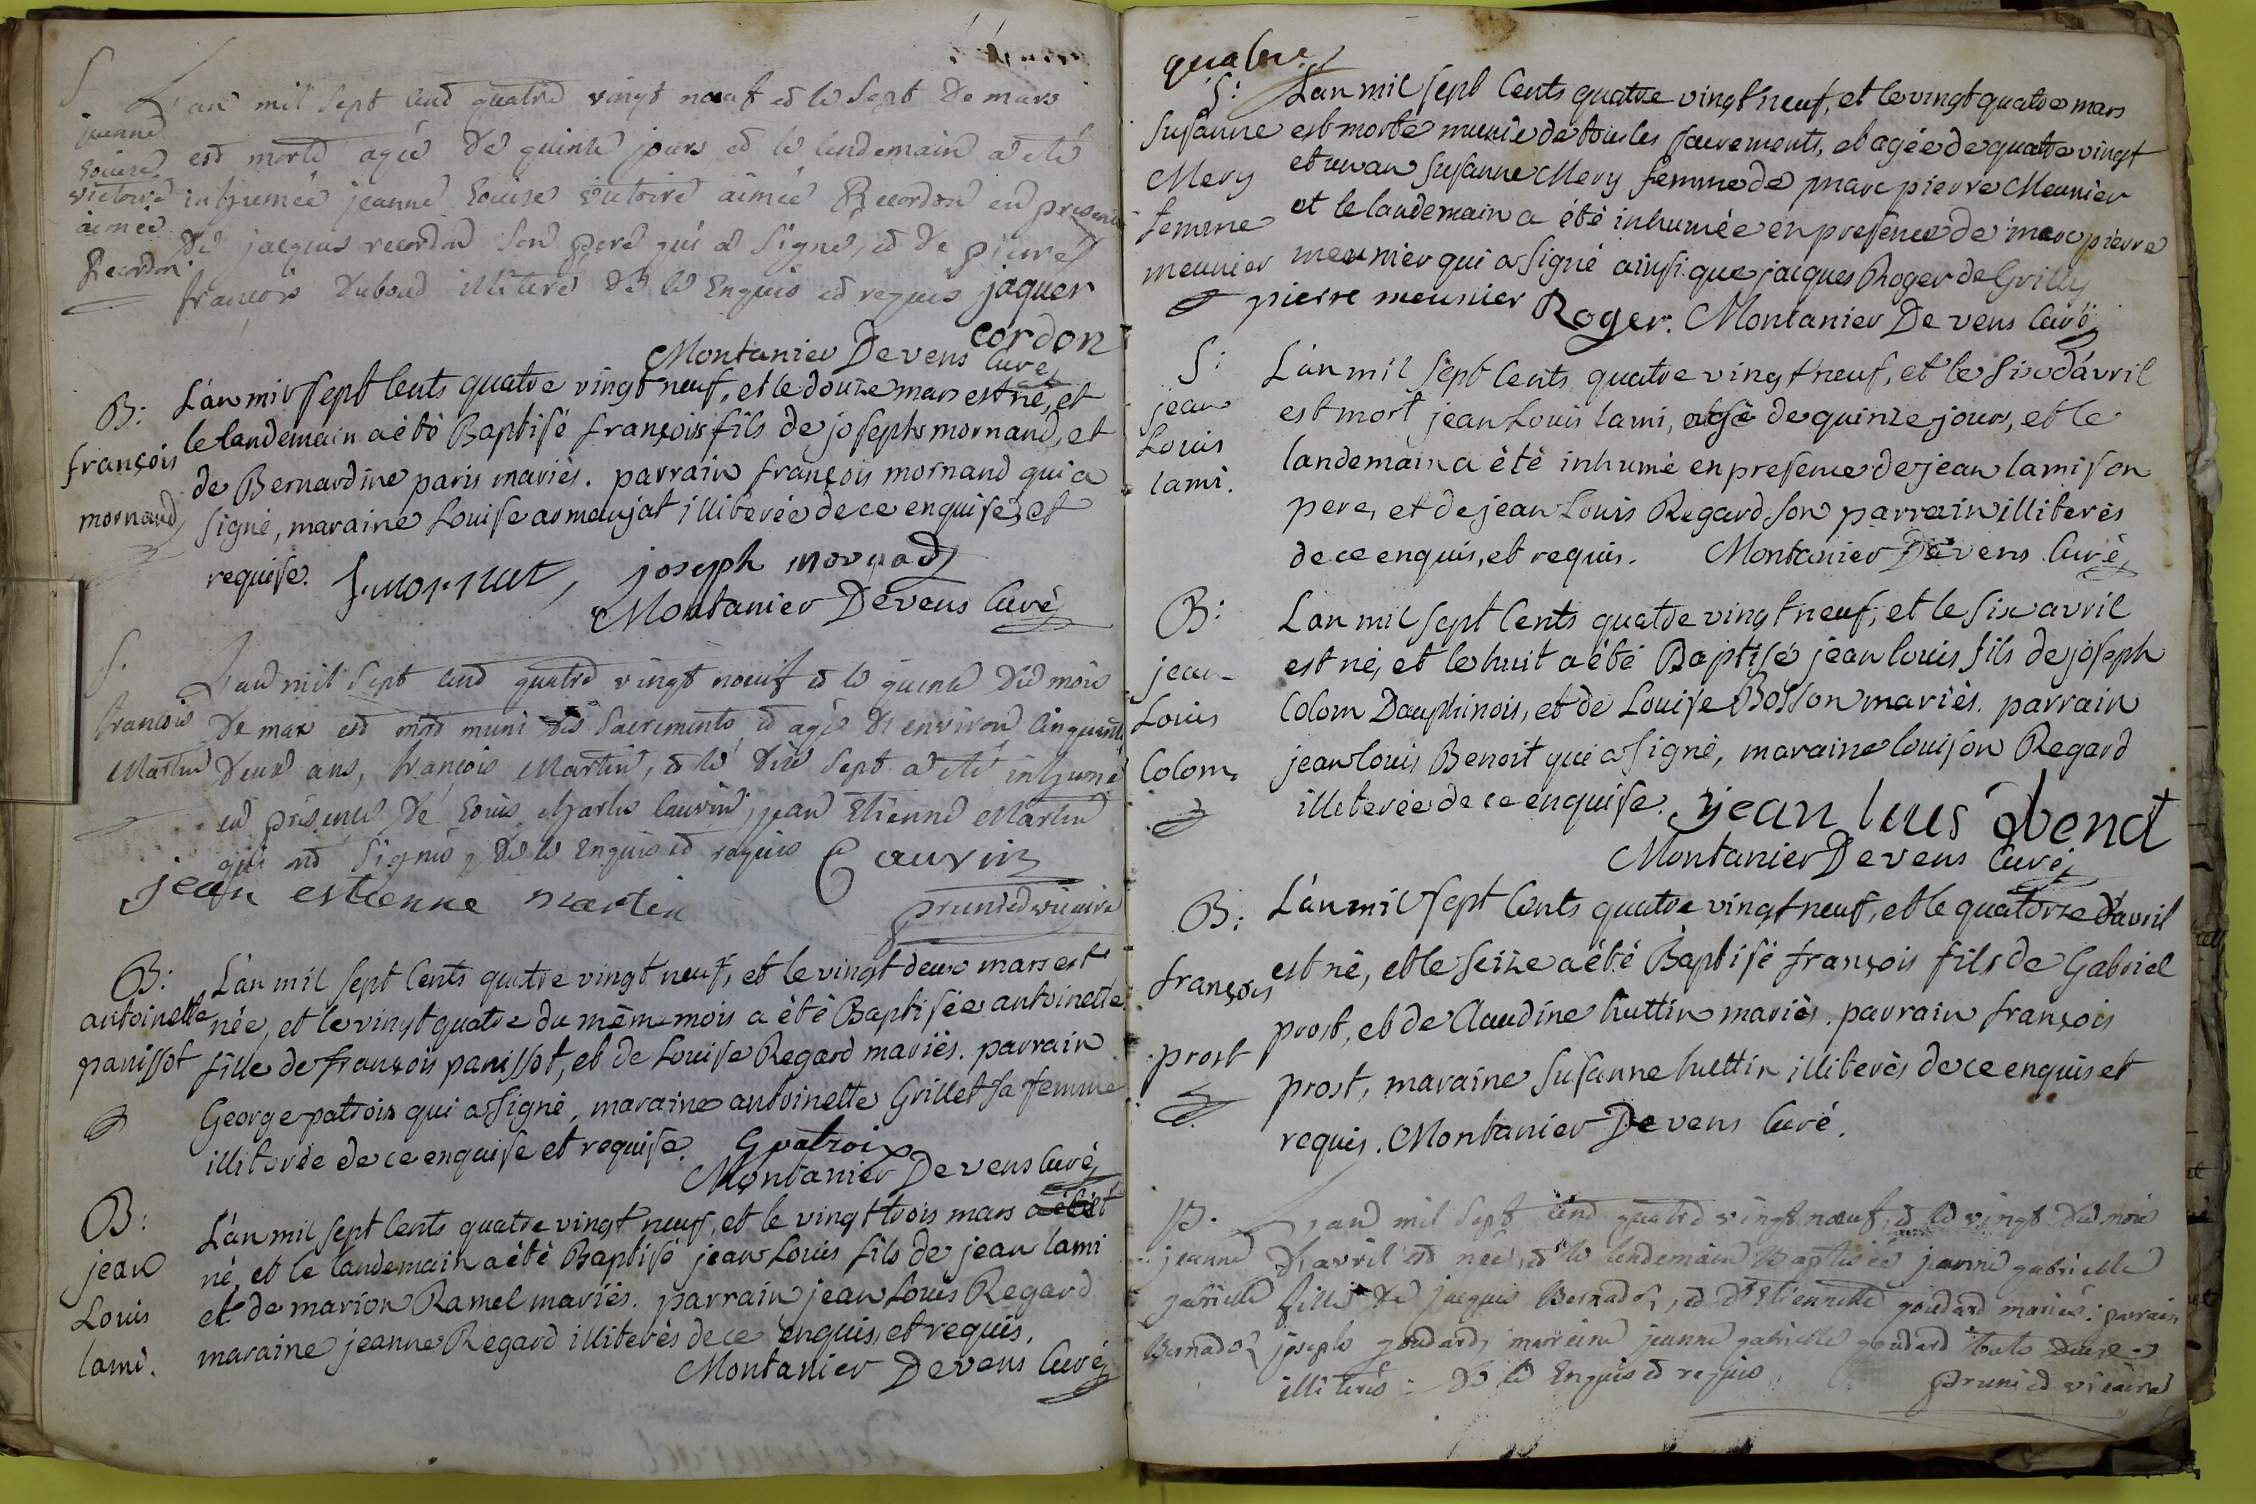 S
L'an mil sept cent quatre vingt nœuf et le sept de mars
jeanne
est morte agée de quinze jours et le lendemain a eté
Louise
victoire
inhumée jeanne Louise victoire aimée Recordon en presence
aimée
de jacques recordon son pere qui a signé, et de pierre
Recordon.
francois duboud illiteré de ce enquis et requis jaquer
cordon
Montanier Devens Curé
B:
L'an mil sept Cents quatre vingt neuf, et le douze mars est né, et
françois
le landemain a été Baptisé françois fils de joseph mornand, et
de Bernardine paris mariés. parrain françois mornand qui a
mornand
signé, maraine Louise armanjat illiterée de ce enquise, et
requise. joseph mornad
Montanier Devens Curé
S.
L'an mil sept cent quatre vingt nœuf et le quinze du mois
francois
de mars est mort muni des sacrements, et agé d'environ cinquante
Martin
deux ans, françois Martin, et le dix sept a eté inhumé
en présence de Louis charles Cauvin, jean Etienne Martin
qui ont signés de ce enquis et requis Cauvin
jean estienne martin
prunier vicaire
B:
L'an mil sept Cents quatre vingt neuf, et le vingt deux mars est
antoinette
née, et le vingt quatre du même mois a été Baptisée antoinette
panissot
fille de françois panissot, et de Louise Regard mariés. parrain
George patroix qui a signé, maraine antoinette Grillet sa femme
illiterée de ce enquise et requise. G patroix
Montanier Devens Curé
B:
L'an mil sept Cents quatre vingt neuf, et le vingt trois mars a été t
jean
né, et le landemain a été Baptisé jean Louis fils de jean lami
Louis
et de marion Ramel mariés. parrain jean Louis Regard
lami.
maraine jeanne Regard illiterés de ce enquis, et requis.
Montanier Devens Curé
quatre
S:
L'an mil sept Cents quatre vingt neuf, et le vingt quatre mars
Susanne
est morte munie de tous les sacrements, et agée de quatre vingt
Mery
et un an Susanne Mery femme de marc pierre Meunier
femme
et le landemain a été inhumée en presence de marc pierre
meunier
meunier qui a signé ainsi que jacques Roger de Grilly
pierre meunier Roger. Montanier Devens Curé
S:
L'an mil sept Cents quatre vingt neuf, et le six d'avril
jean
est mort jean Louis lami, agé de quinze jours, et le
Louis
landemain a été inhumé en presence de jean lami son
lami.
pere, et de jean Louis Regard son parrain illiterés
de ce enquis, et requis. Montanier Devens Curé
B:
L'an mil sept Cents quatre vingt neuf, et le six avril
est né, et le huit a été Baptisé jean louis fils de joseph
jean
Louis
Colom Dauphinois, et de Louise Bosson mariés. parrain
Colom
jean louis Benoit qui a signé, maraine louison Regard
illiterée de ce enquise. jean luus benot
Montanier Devens Curé
B:
L'an mil sept Cents quatre vingt neuf, et le quatorze d'avril
françois
est né, et le seize a été Baptisé françois fils de Gabriel
prost, et de Claudine huttin mariés. parrain françois
prost
prost, maraine Susanne huttin illiterés de ce enquis et
requis. Montanier Devens Curé.
B.
L'an mil sept cent quatre vingt nœuf, et le vingt du mois
jeanne
d'avril est née, et le lendemain Baptisée jeanne gabrielle
gabrielle
fille de jacques Bernadot, et d'Etiennette goudard mariés: parrain
Bernadot
joseph goudard, marraine jeanne gabrielle goudard touts deux
illiterés de ce enquis et requis prunier vicaire